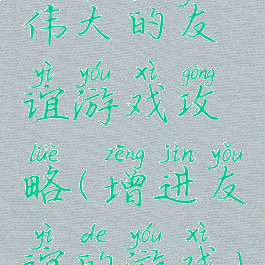 伟大的友
yì yóu xì gōng
谊游戏攻
lüè zēng jìn yǒu
略(增进友
yì de yóu xì
谊的游戏)